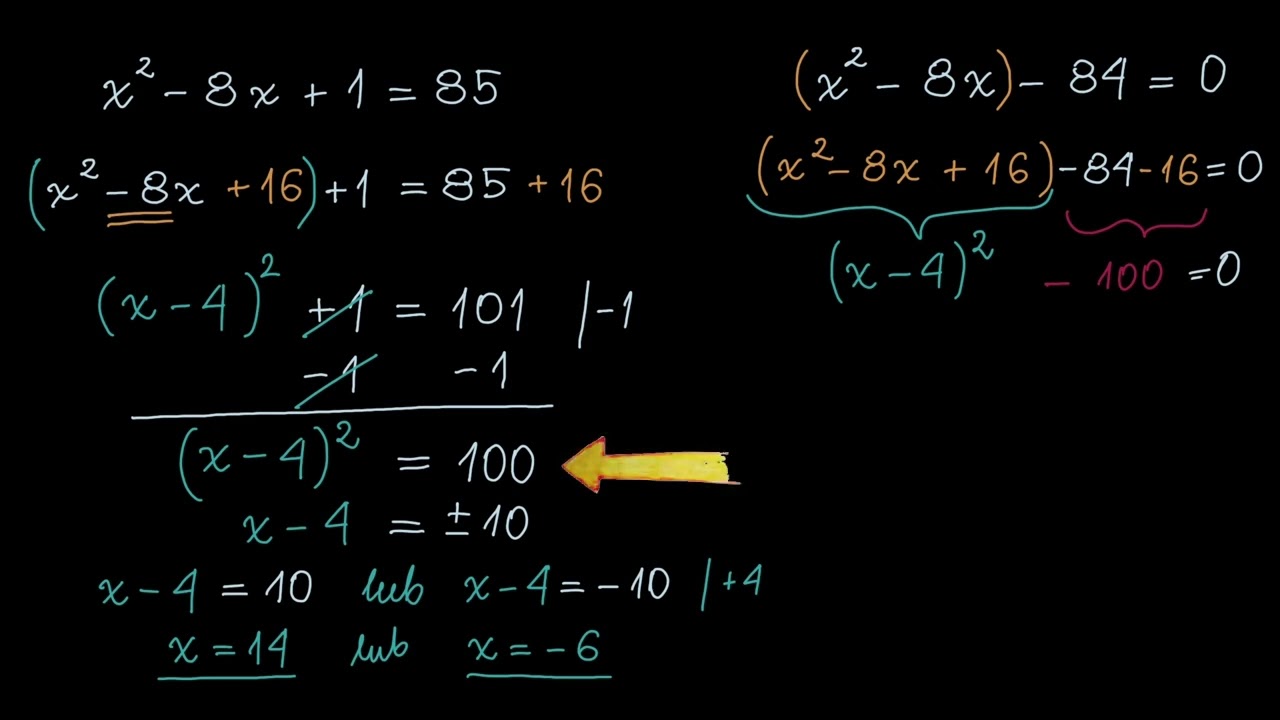 x² - 8x + 1 = 85
(x² - 8x + 16) + 1 = 85 + 16
(x - 4)² + 1 = 101 | -1
- 1 - 1
(x - 4)² = 100
x - 4 = ± 10
x - 4 = 10 lub x - 4 = - 10 | + 4
x = 14 lub x = - 6
(x² - 8x) - 84 = 0
(x² - 8x + 16) - 84 - 16 = 0
(x - 4)² - 100 = 0